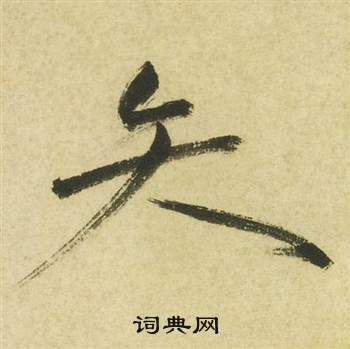 矢
词典网